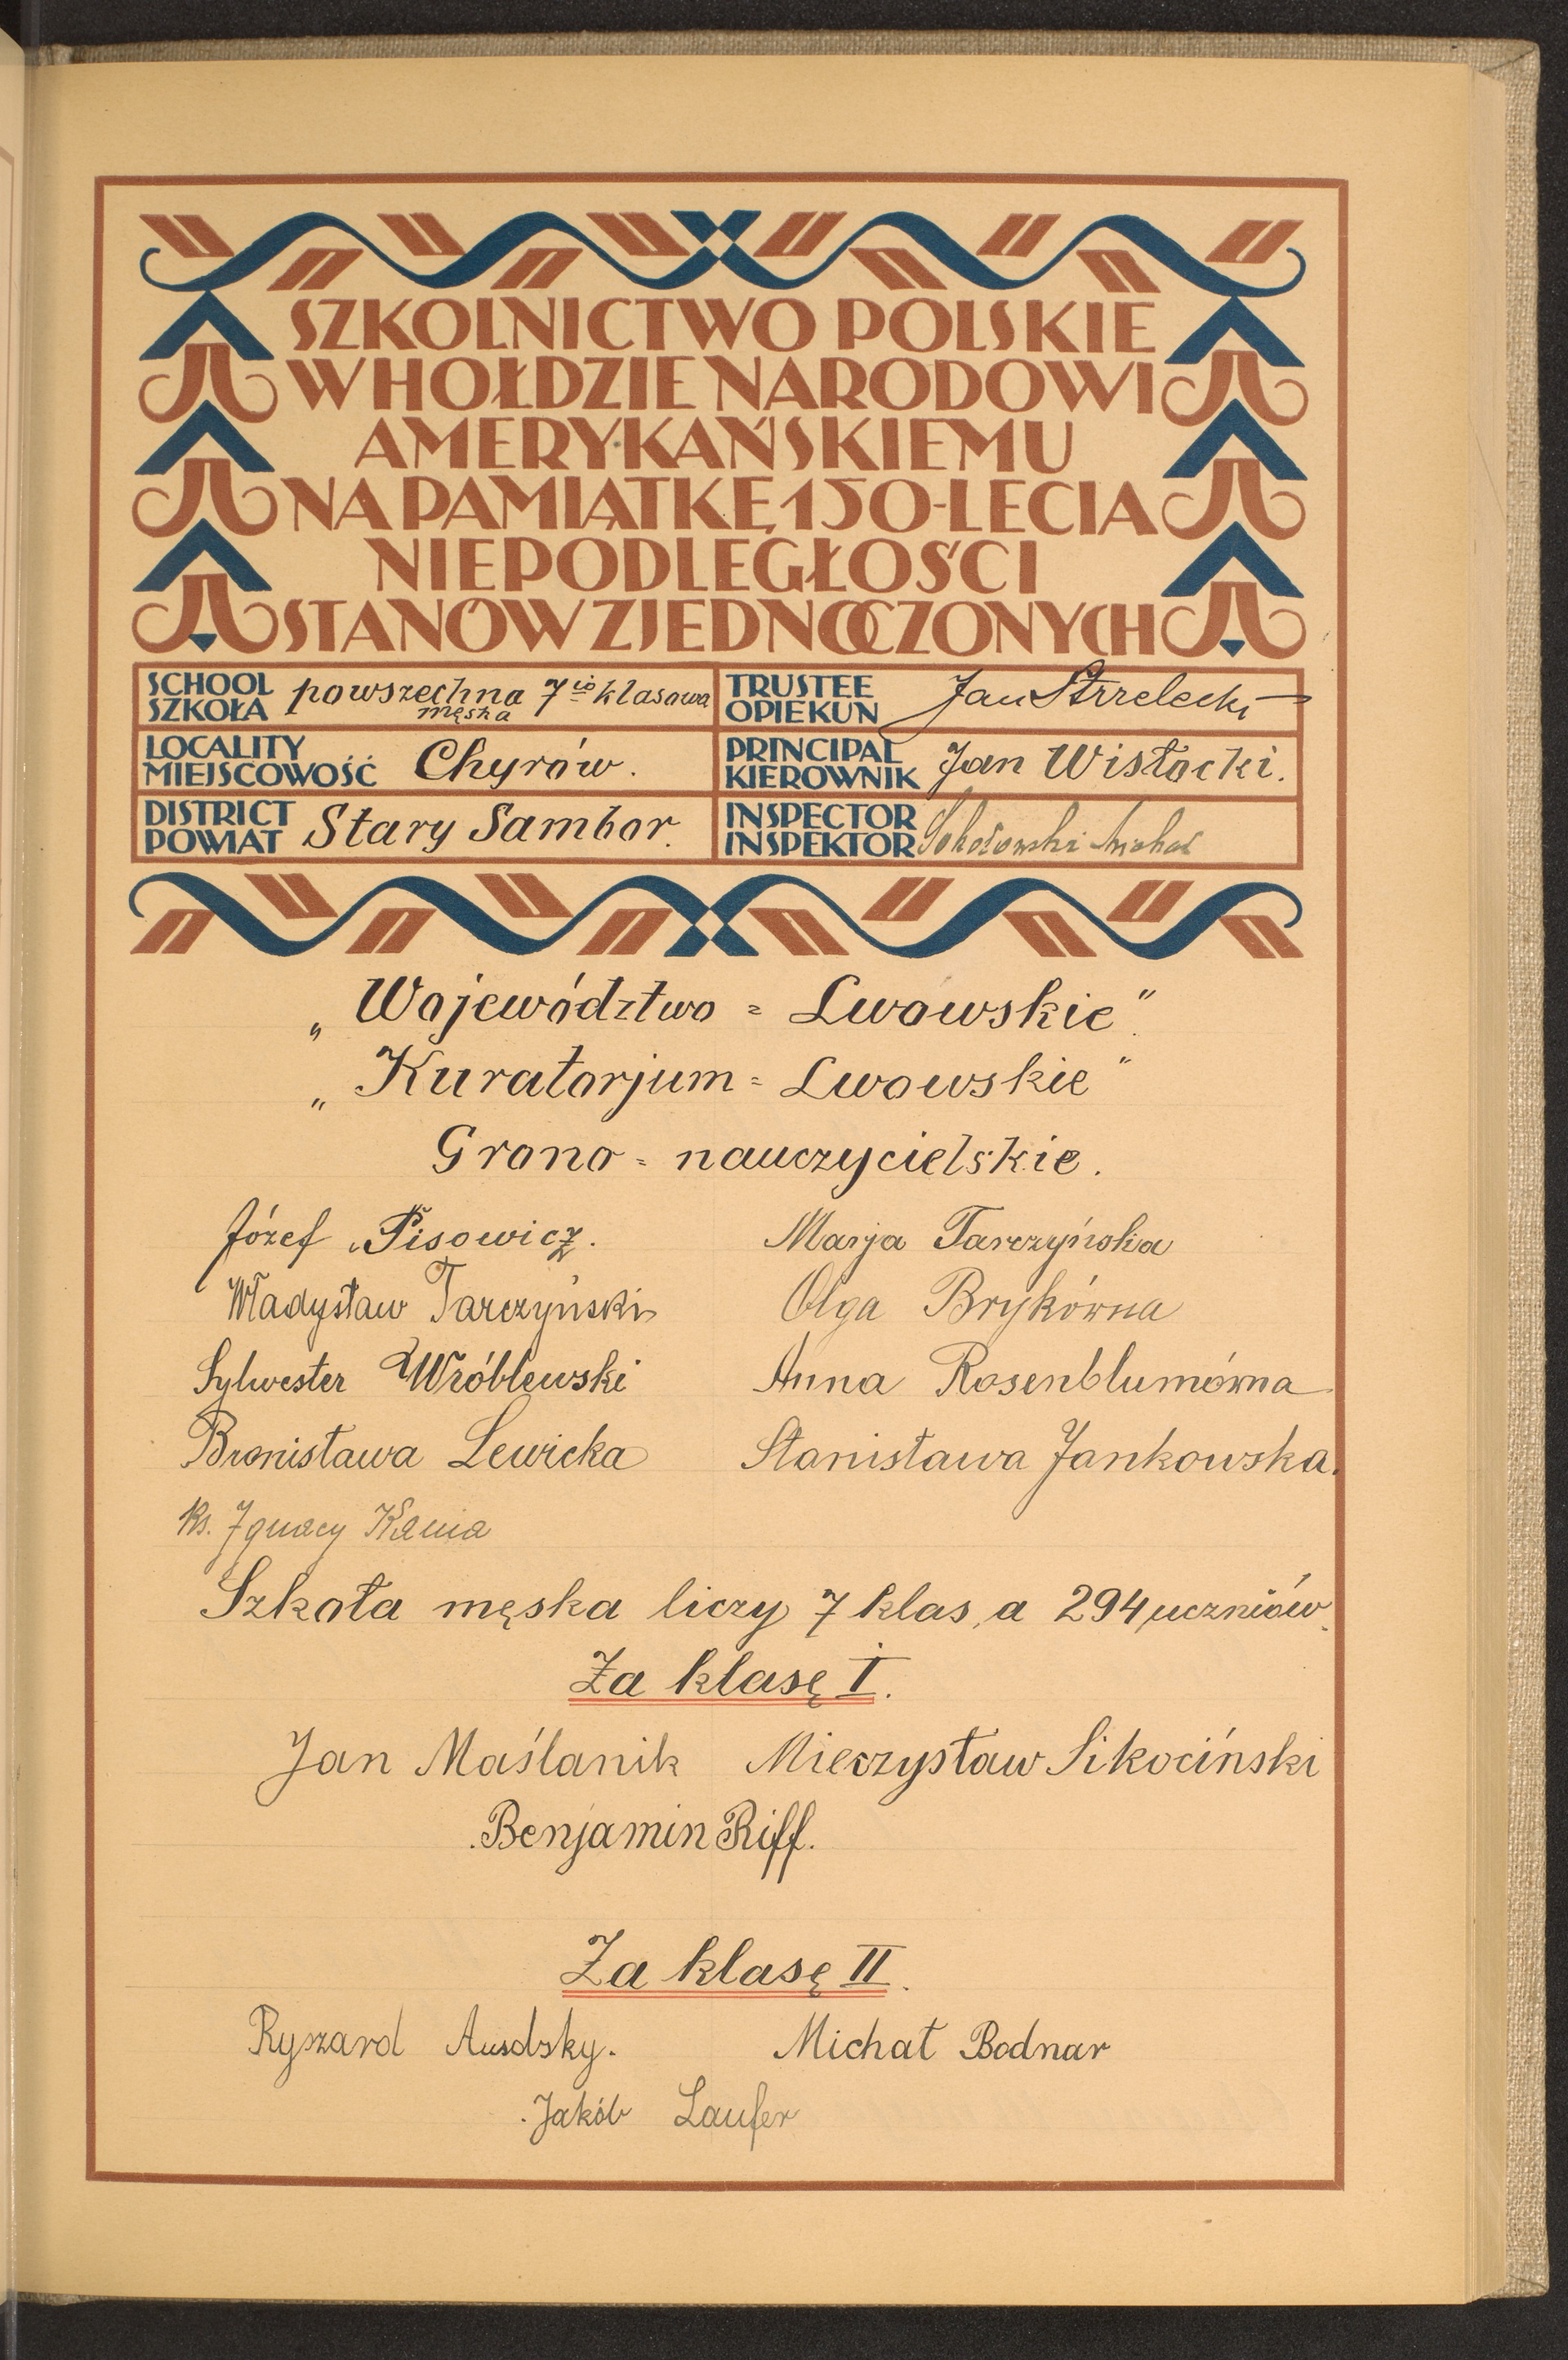 SZKOLNICTWO POLSKIE
W HOŁDZIE NARODOWI
AMERYKAŃSKIEMU
NA PAMIĄTKĘ 150-LECIA
NIEPODLEGŁOŚCI
STANÓW ZJEDNOCZONYCH
SCHOOL
SZKOŁA powszechna 7io klasowa
męska
TRUSTEE
OPIEKUN Jan Strzelecki
LOCALITY
MIEJSCOWOŚĆ Chyrów.
PRINCIPAL
KIEROWNIK Jan Wisłocki.
DISTRICT
POWIAT Stary Sambor.
INSPECTOR
INSPEKTOR Sokołowski Michał
„Województwo = Lwowskie".
„Kuratorjum = Lwowskie"
Grono = nauczycielskie.
Józef Pisowicz. Marja Tarczyńska
Władysław Tarczyński Olga Brykówna
Sylwester Wróblewski Anna Rosenblumówna
Bronisława Lewicka Stanisława Jankowska.
Ks. Ignacy Kania
Szkoła męska liczy 7 klas, a 294 uczniów.
Za klasę I.
Jan Maślanik Mieczysław Sikociński
Benjamin Riff.
Za klasę II.
Ryszard Michał Bodnar
Jakób Laufer